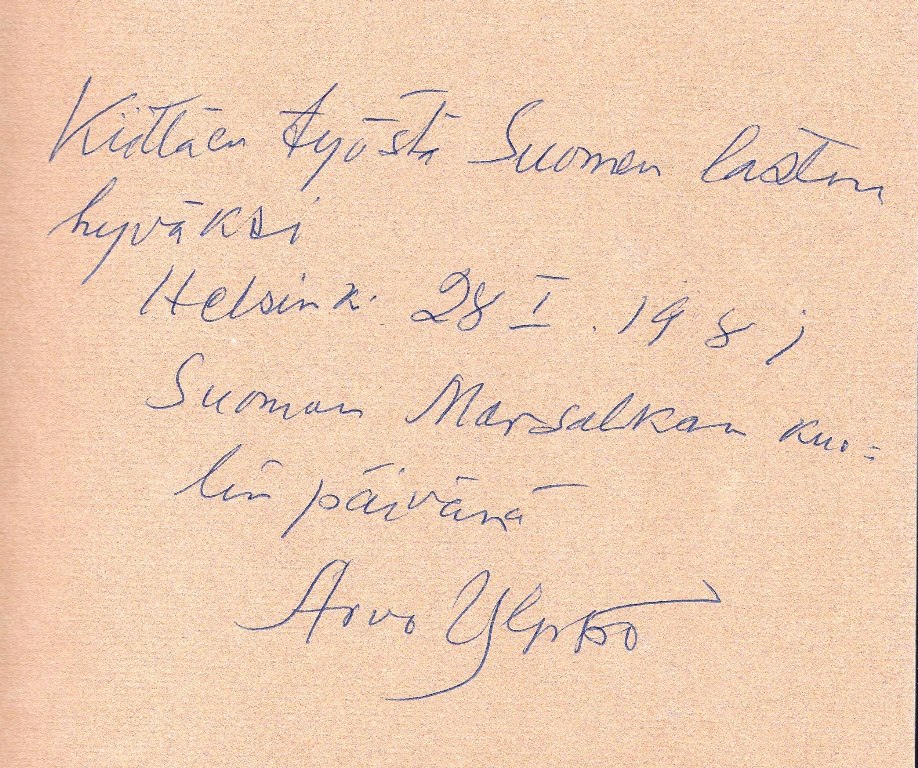 Kiittäen työstä Suomen lasten
hyväksi
Helsinki 28 I. 1981
Suomen Marsalkan kuo=
lin päivänä
Arvo Ylppö